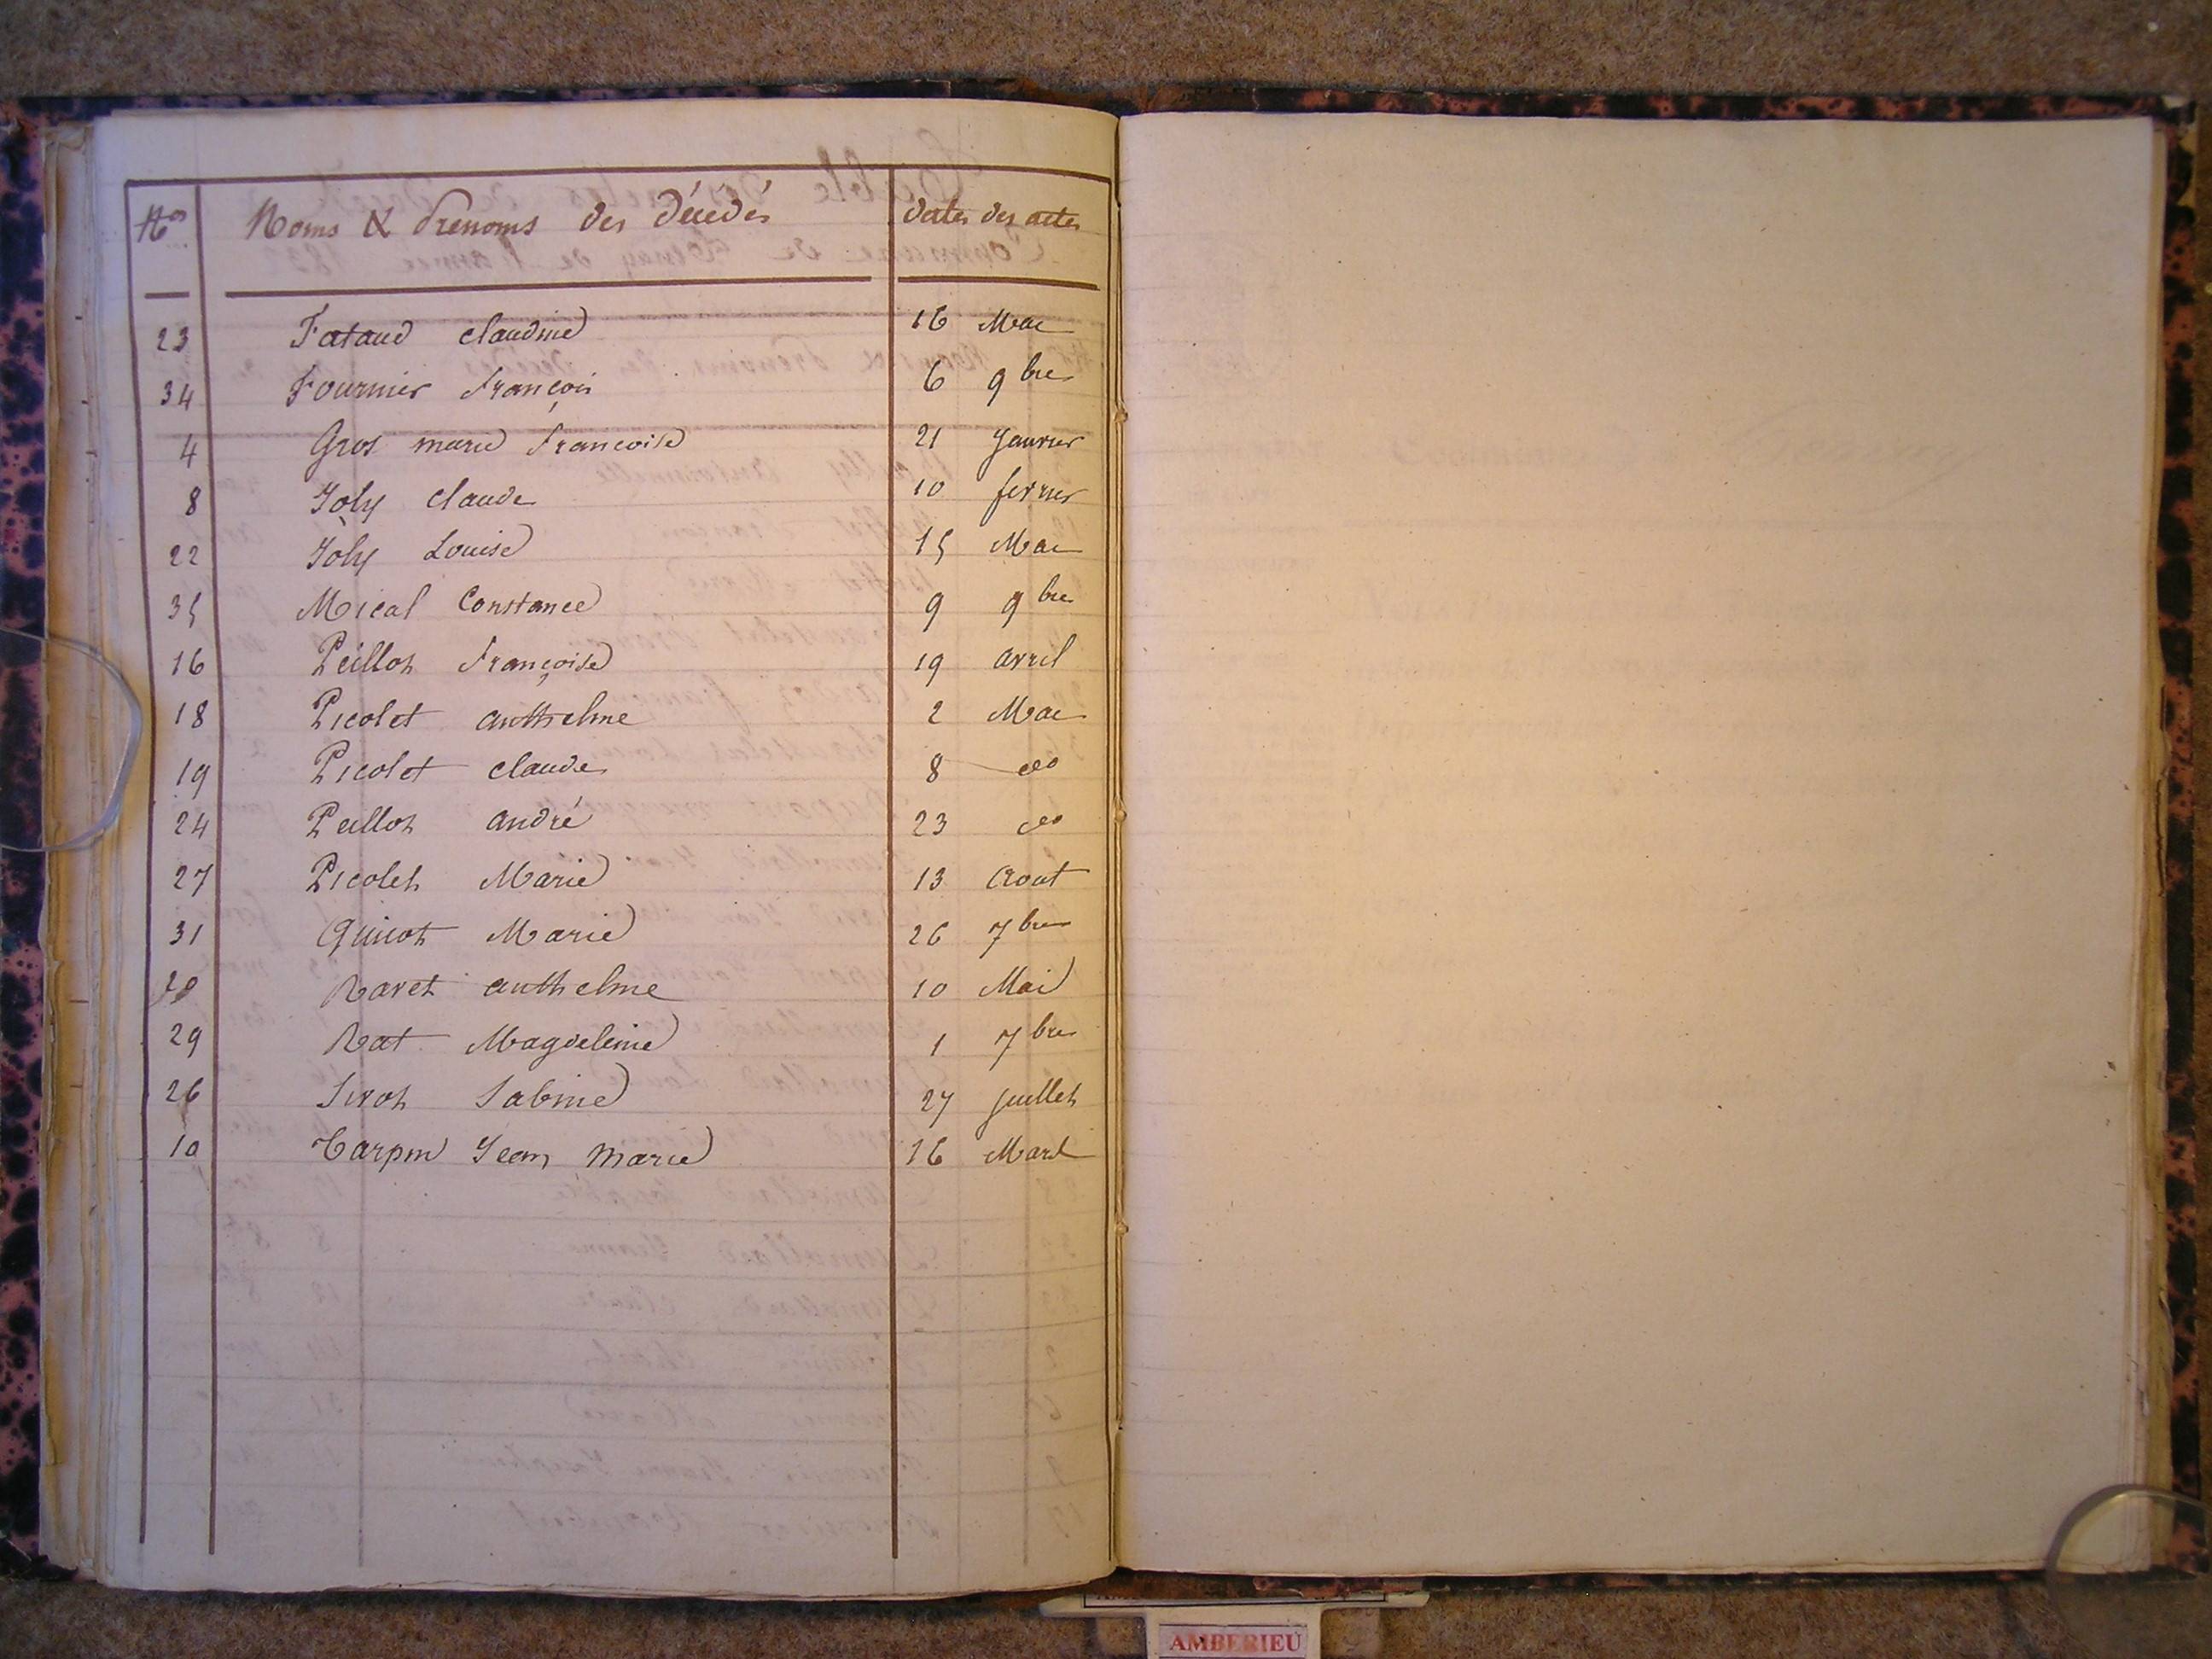 Nos Noms & Prenoms des décédés dates des actes
23 Fataud Claudine 16 Mai
34 Fournier François 6 9bre
4 Gros marie Francoise 21 Janvier
8 Joly Claude 10 fevrier
22 Joly Louise 15 Mai
35 Mical Constance 9 9bre
16 Peillot Françoise 19 avril
18 Picolet anthelme 2 Mai
19 Picolet Claude 8 do
24 Peillot andré 23 do
27 Picolet Marie 13 Aout
31 Guicot Marie 26 7bre
20 Ravet anthelme 10 Mai
29 Rat Magdeleine 1 7bre
26 Sivot Sabine 27 Juillet
10 Tarpin Jean Marie 16 Mars
AMBERIEU